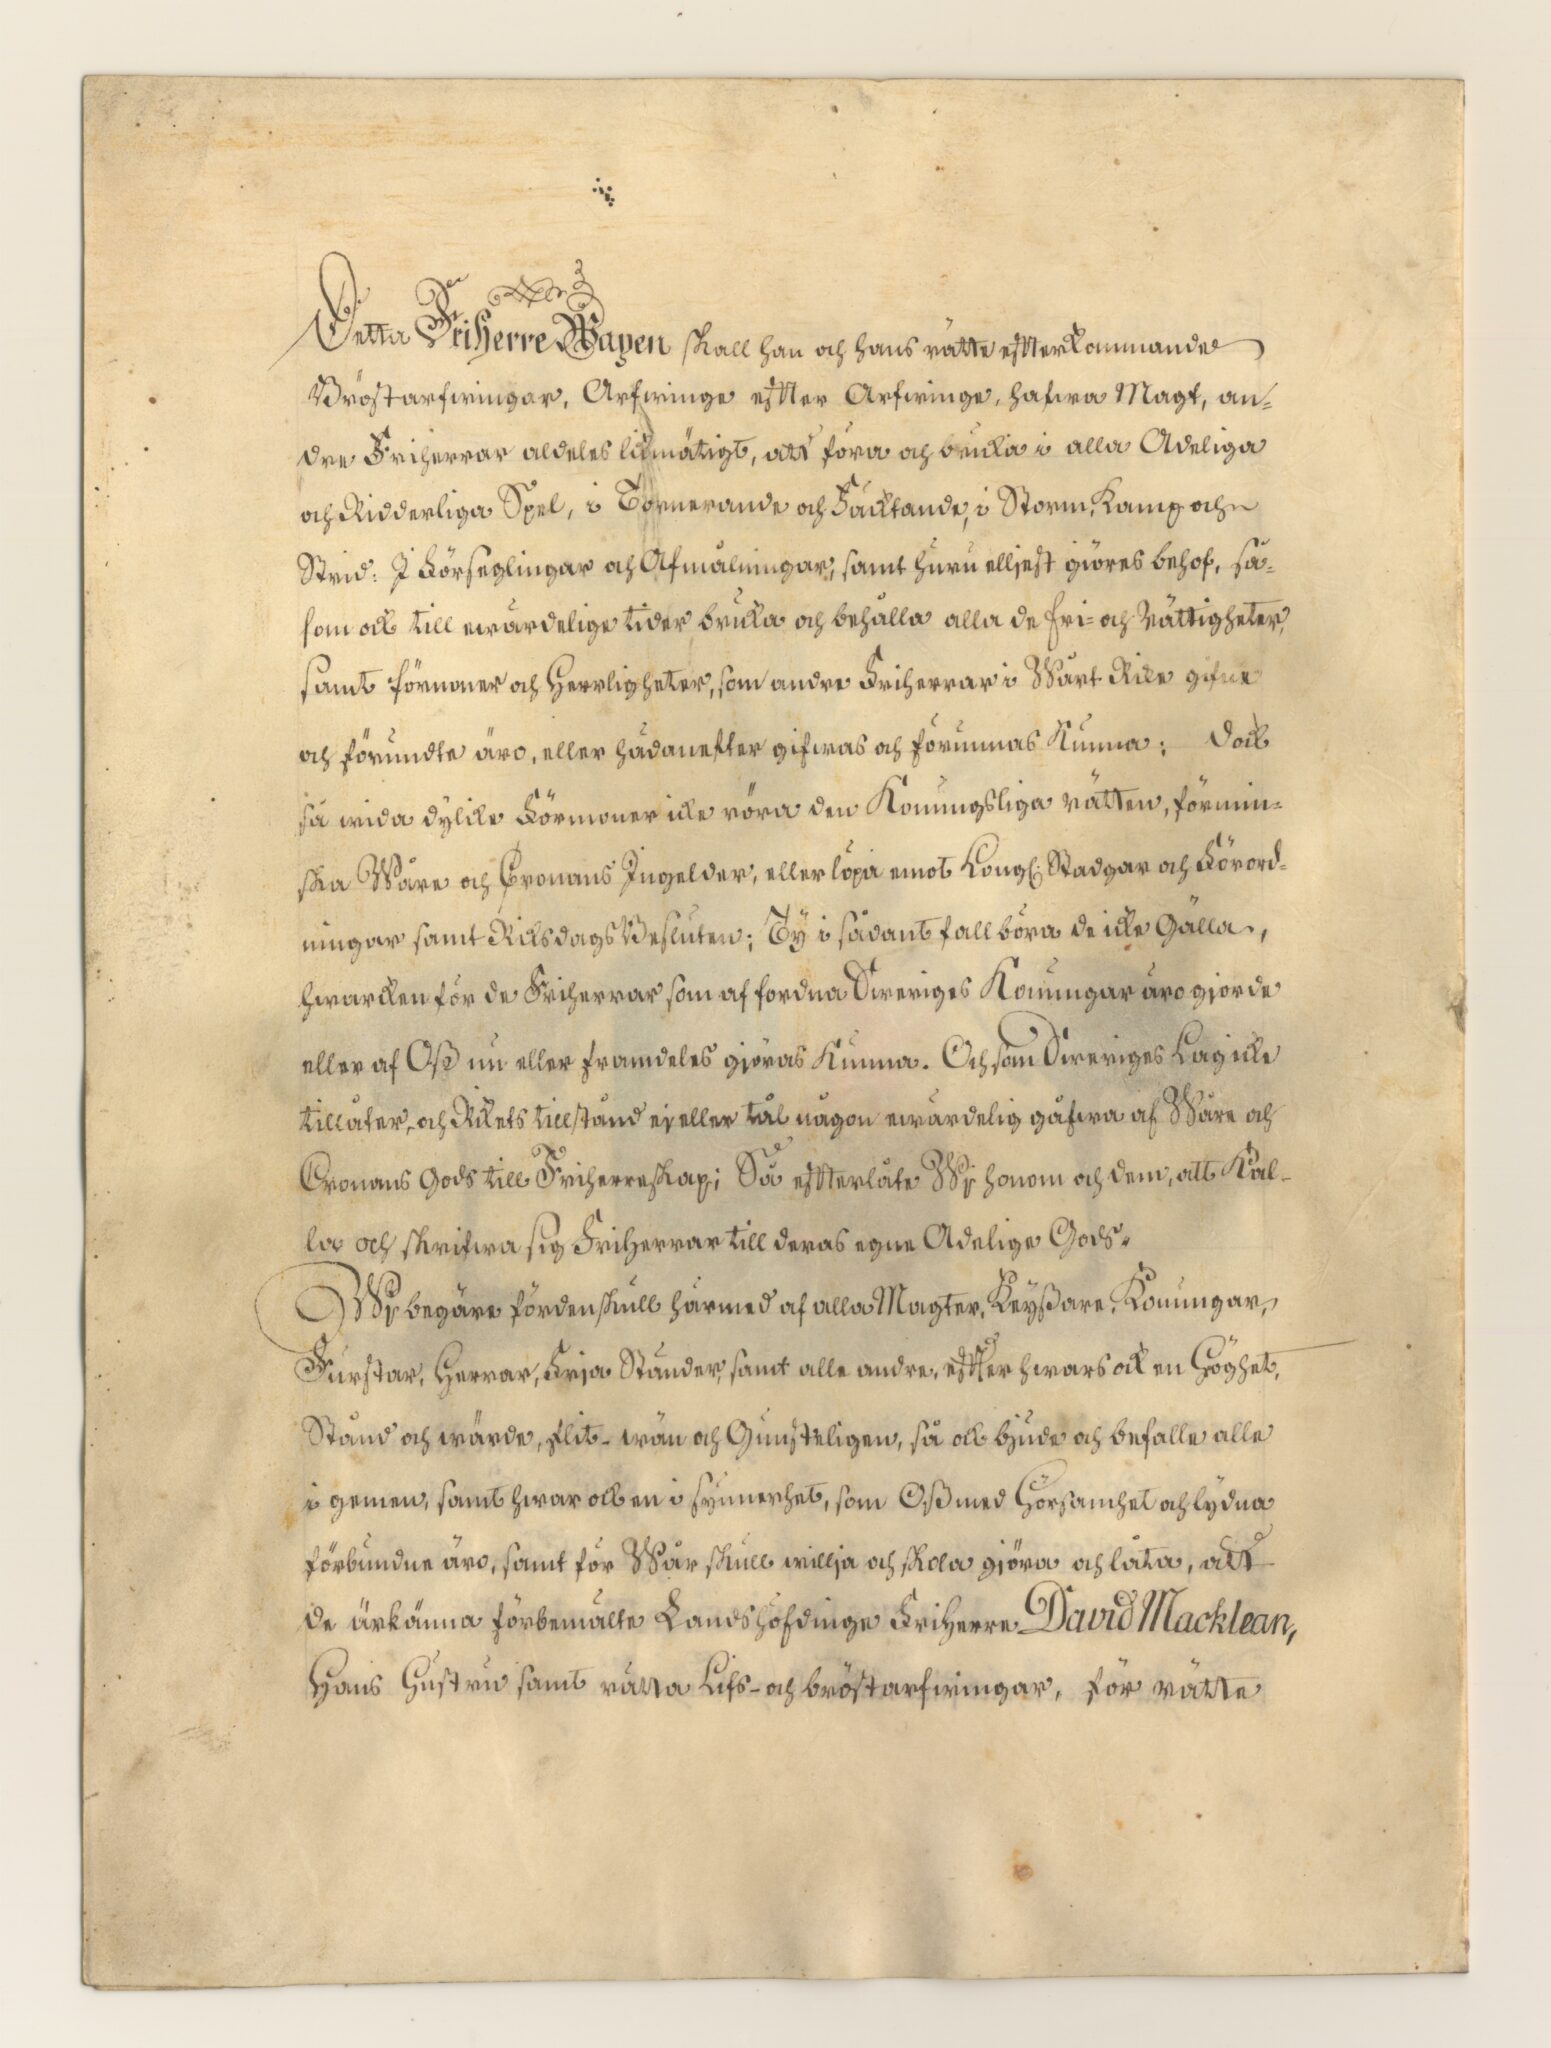 Detta FriHerre Wapen skall han och hans rätte efterkommande
Bröstarfwingar, Arfwinge efter Arfwinge, hafwa Magt, an=
dre Friherrar aldeles likmätigt, att föra och bruka i alla Adeliga
och Ridderliga Spel, i Tornerande och Fäcktande, i Storm, Kamp och
Strid: I Förseglingar och Afmålningar, samt huru elljest giöres behof, så=
som ock till ewärdelige tider bruka och behålla alla de fri= och Rättigheter,
samt förmoner och Herrligheter, som andre Friherrar i Wårt Rike gifne
och förundte äro, eller hädanefter gifwas och förunnas Kunna; dock
så wida dylike Förmoner icke röra den Konungsliga rätten, förmin=
ska Wåre och Cronans Ingelder, eller löpa emot Kongl: Stadgar och Förord=
ningar samt Riksdags Besluten; Ty i sådant fall böra de icke Gälla,
hwarcken för de Friherrar som af fordna Sweriges Konungar äro gjorde
eller af Oß nu eller framdeles gjöras Kunna. Och som Sweriges Lag icke
tillåter, och Rikets tillstånd ej eller tål någon ewärdelig gåfwa af Wåre och
Cronans Gods till Friherreskap; Så efterlåte Wij honom och dem, att Kal=
la och skrifwa sig FriHerrar till deras egne Adelige Gods.
Wij begäre fördenskull härmed af alla Magter, Keyßare, Konungar,
Furstar, Herrar, Fria Ständer, samt alle andre, efter hwars ock en Höghet,
Stånd och wärde, flit- wän och Gunsteligen, så ock bjude och befalle alle
i gemen, samt hwar ock en i synnerhet, som Oß med Hörsamhet och lydna
förbundne äro, samt för Wår skull willja och skola gjöra och låta, att
de ärkänna förbemälte Landshöfdinge FriHerre David Macklean,
Hans Hustru samt rätta Lifs- och bröstarfwingar, för rätte